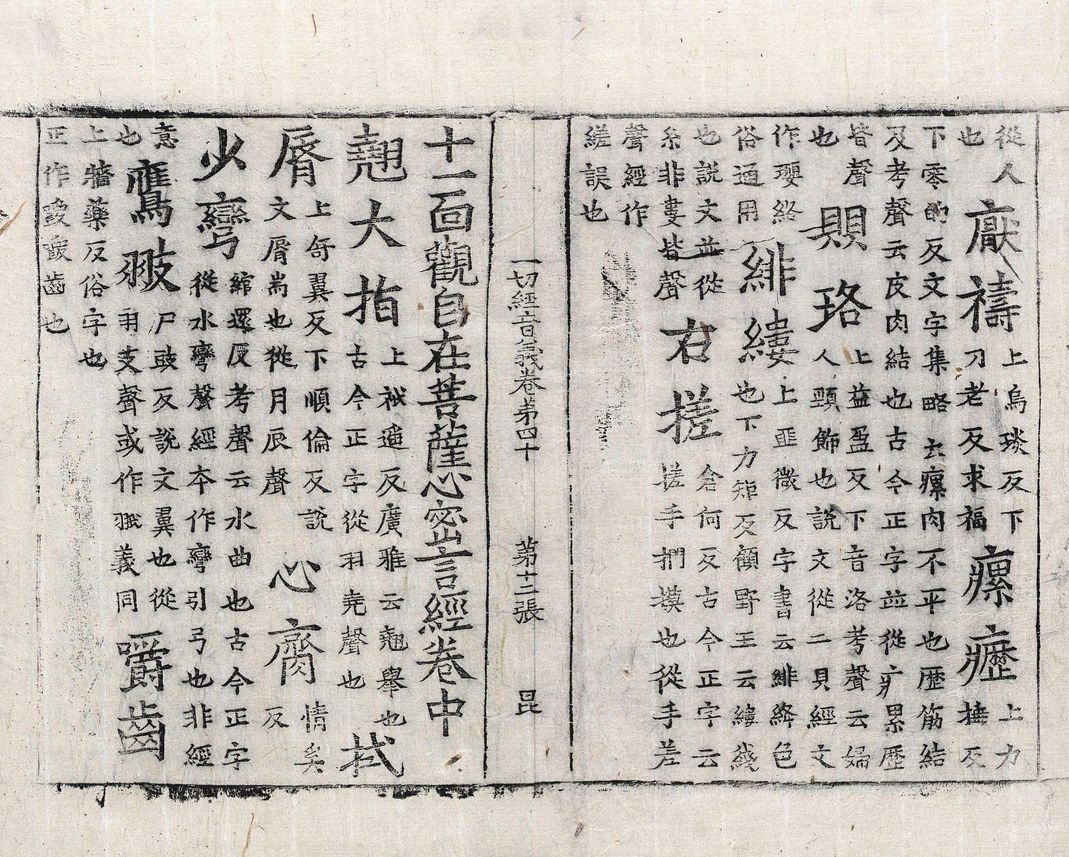 從人
也
厭禱
上烏琰反下
刀老反求福
瘰癧
上力
捶反
下零的反文字集略云瘰肉不平也歷筋結
及考聲云皮肉結也古今正字並從疒累歷
皆聲
也
賏珞
上益盈反下音洛考聲云婦
人頸飾也說文從二貝經文
作瓔絡
俗通用
緋縷
上匪微反字書云緋絳色
也下力矩反顧野王云縷綫
也說文並從
糸非婁皆聲
右搓
倉何反古今正字云
搓手捫摸也從手差
聲經作
縒誤也
一切經音義卷第四十 第十二張 昆
十一面觀自在菩薩心密言經卷中
翹大指
上祇遙反廣雅云翹舉也
古今正字從羽堯聲也
栻
脣
上奇翼反下順倫反說
文脣耑也從月辰聲
心齎
情奚
反
少彎
綰還反考聲云水曲也古今正字
從水彎聲經本作彎引弓也非經
意
也
鷹翅
尸豉反說文翼也從
羽支聲或作翄義同
嚼齒
上牆藥反俗字也
正作齒也